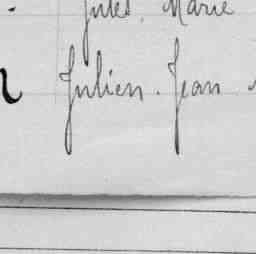 Jules, Marie
Julien. Jean